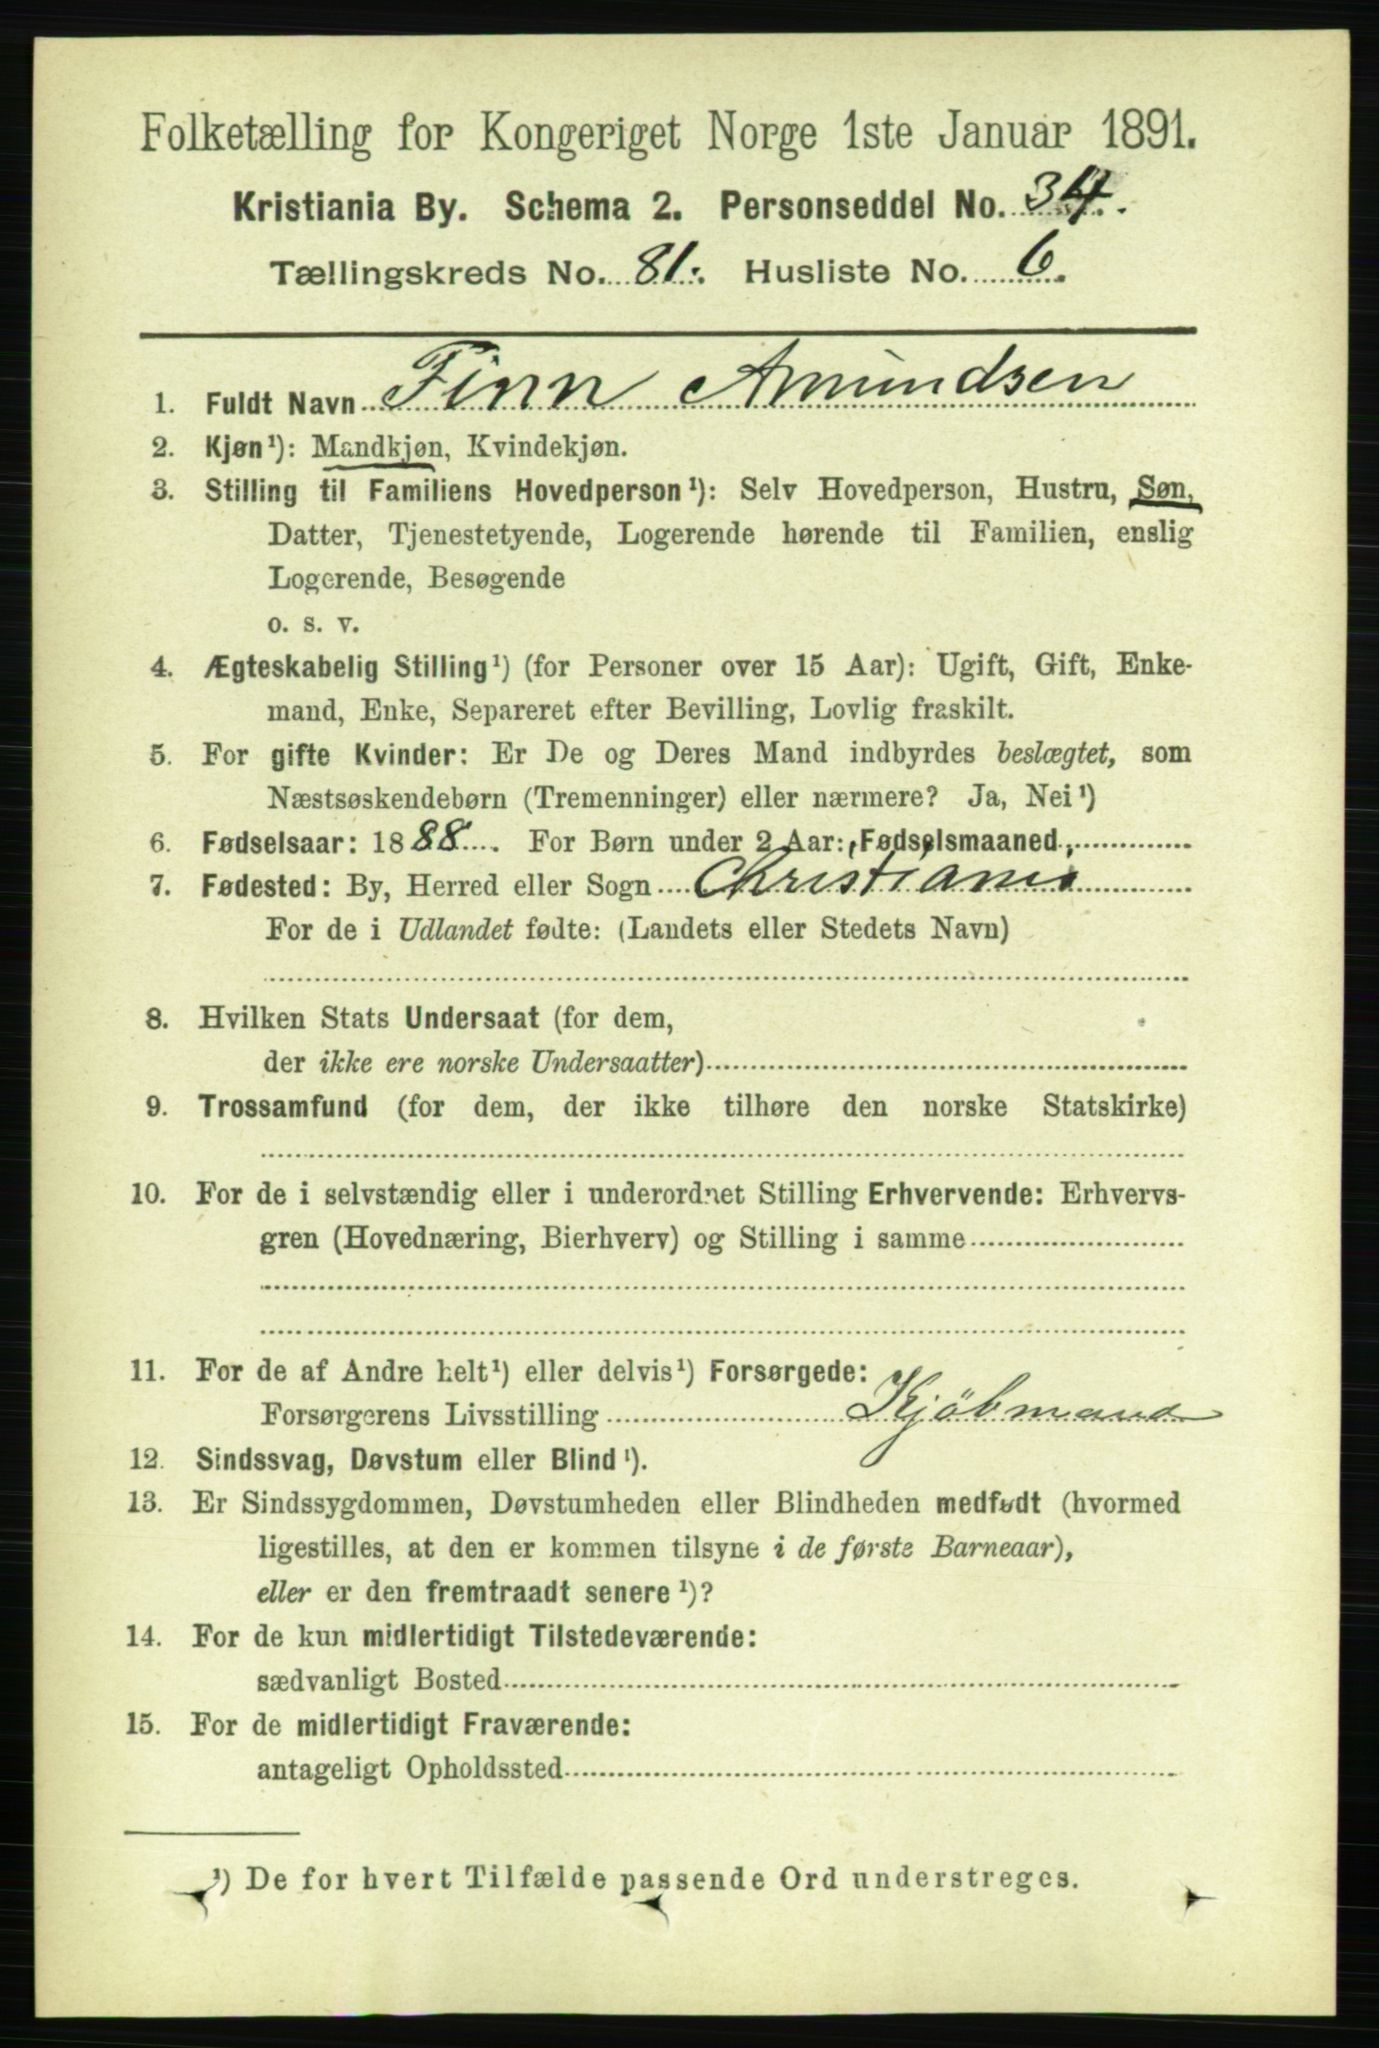 Folketælling for Kongeriget Norge 1ste Januar 1891.
Kristiania By. Schema 2. Personseddel No. 34.
Tællingskreds No. 81. Husliste No. 6.
1. Fuldt Navn Finn Amundsen
2. Kjøn¹): Mandkjøn, Kvindekjøn.
3. Stilling til Familiens Hovedperson¹): Selv Hovedperson, Hustru, Søn,
Datter, Tjenestetyende, Logerende hørende til Familien, enslig
Logerende, Besøgende
o. s. v.
4. Ægteskabelig Stilling¹) (for Personer over 15 Aar): Ugift, Gift, Enke-
mand, Enke, Separeret efter Bevilling, Lovlig fraskilt.
5. For gifte Kvinder: Er De og Deres Mand indbyrdes beslægtet, som
Næstsøskendebørn (Tremenninger) eller nærmere? Ja, Nei¹)
6. Fødselsaar: 1888. For Børn under 2 Aar: Fødselsmaaned
7. Fødested: By, Herred eller Sogn Christiania
For de i Udlandet fødte: (Landets eller Stedets Navn)
8. Hvilken Stats Undersaat (for dem,
der ikke ere norske Undersaatter)
9. Trossamfund (for dem, der ikke tilhøre den norske Statskirke)
10. For de i selvstændig eller i underordnet Stilling Erhvervende: Erhvervs-
gren (Hovednæring, Bierhverv) og Stilling i samme
11. For de af Andre helt¹) eller delvis¹) Forsørgede:
Forsørgerens Livsstilling Kjöbmand
12. Sindssvag, Døvstum eller Blind¹).
13. Er Sindssygdommen, Døvstumheden eller Blindheden medfødt (hvormed
ligestilles, at den er kommen tilsyne i de første Barneaar),
eller er den fremtraadt senere¹)?
14. For de kun midlertidigt Tilstedeværende:
sædvanligt Bosted
15. For de midlertidigt Fraværende:
antageligt Opholdssted
¹) De for hvert Tilfælde passende Ord understreges.